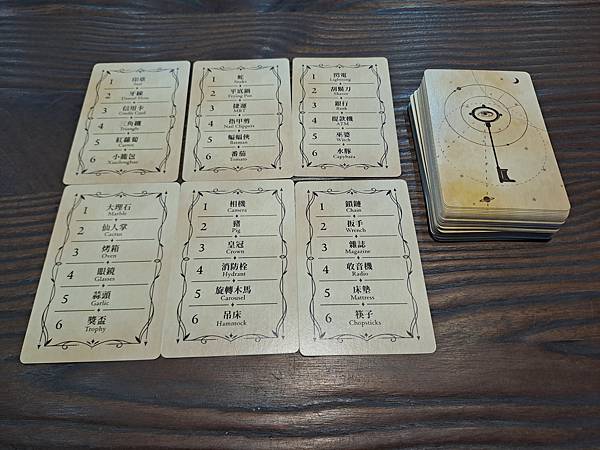 1 印章
Seal
2 牙線
Dental Floss
3 信用卡
Credit Card
4 三角鐵
Triangle
5 紅蘿蔔
Carrot
6 小籠包
Xiaolongbao
1 蛇
Snake
2 平底鍋
Frying Pan
3 捷運
MRT
4 指甲剪
Nail Clippers
5 蝙蝠俠
Batman
6 番茄
Tomato
1 閃電
Lightning
2 刮鬍刀
Shaver
3 銀行
Bank
4 提款機
ATM
5 巫婆
Witch
6 水豚
Capybara
1 大理石
Marble
2 仙人掌
Cactus
3 烤箱
Oven
4 眼鏡
Glasses
5 蒜頭
Garlic
6 獎盃
Trophy
1 相機
Camera
2 豬
Pig
3 皇冠
Crown
4 消防栓
Hydrant
5 旋轉木馬
Carousel
6 吊床
Hammock
1 鎖鏈
Chain
2 扳手
Wrench
3 雜誌
Magazine
4 收音機
Radio
5 床墊
Mattress
6 筷子
Chopsticks